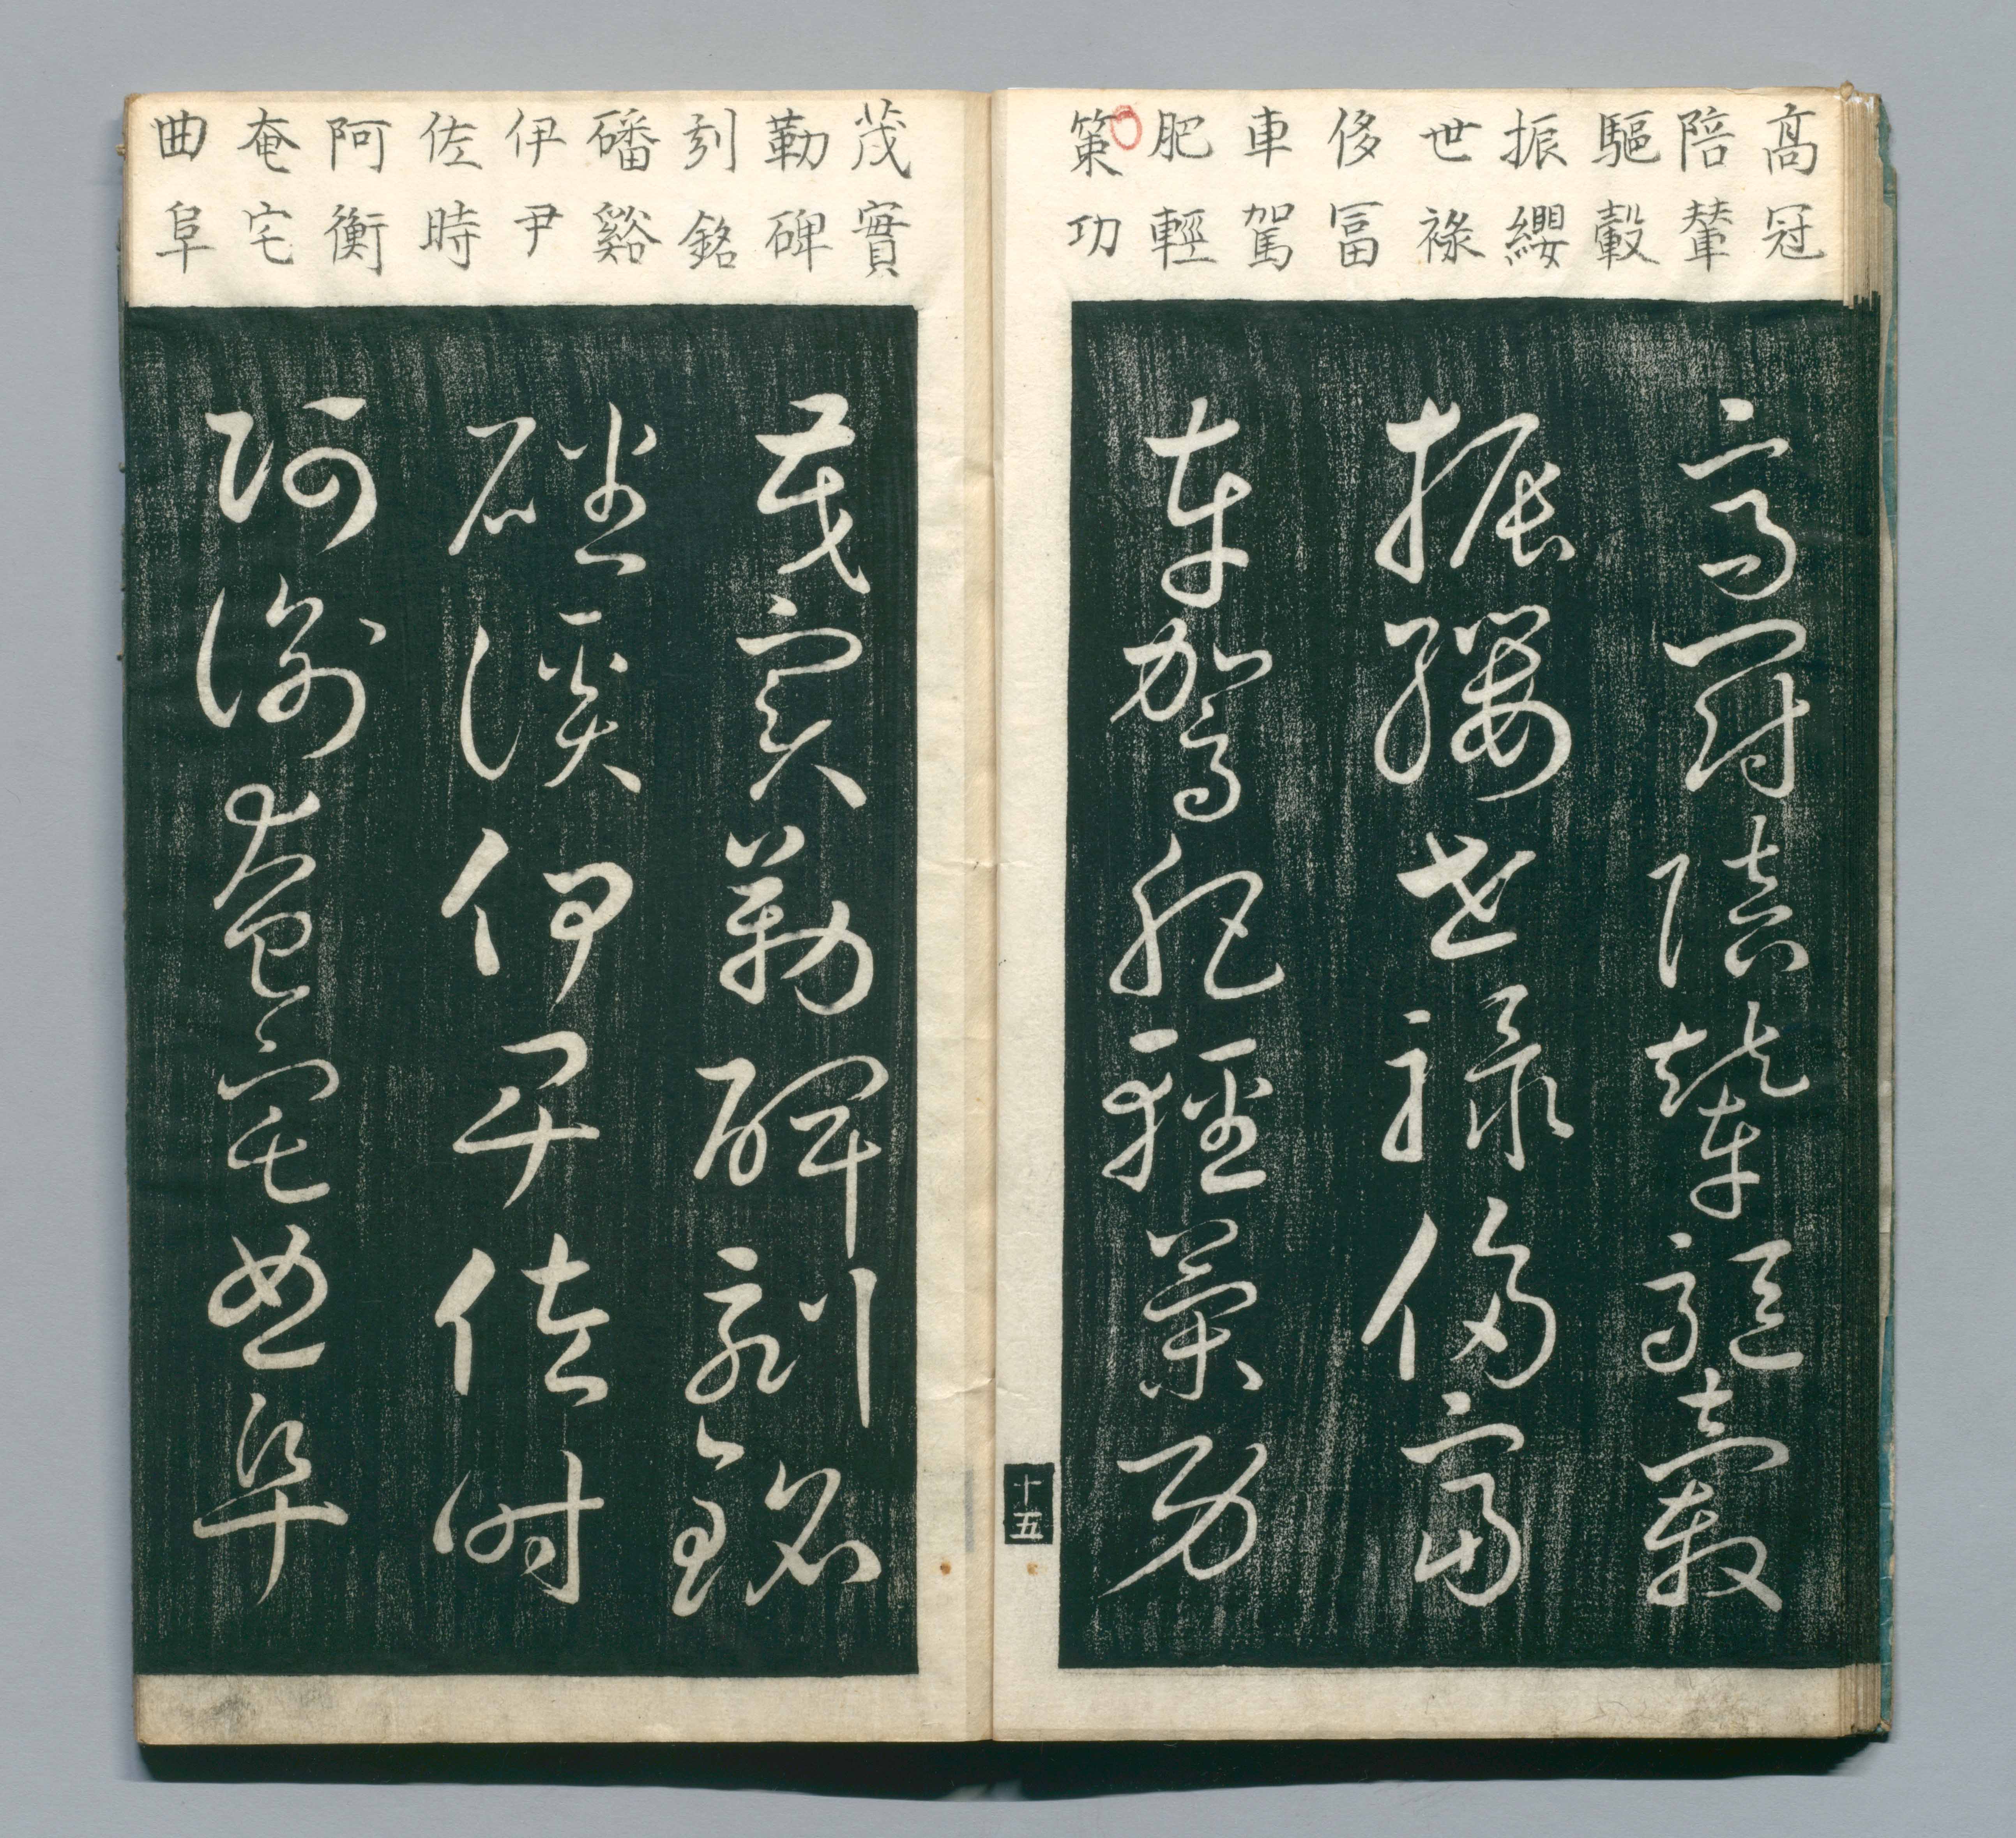 高冠
陪輦
驅轂
振纓
世祿
侈冨
車駕
肥輕
策功
高冠陪輦驅轂
振纓世祿侈富
車駕肥輕策功
十五
茂實
勒碑
刻銘
磻谿
伊尹
佐時
阿衡
奄宅
曲阜
茂實勒碑刻銘
磻溪伊尹佐時
阿衡奄宅曲阜